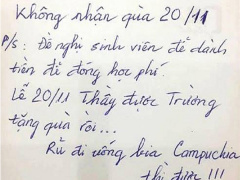 Không nhận quà 20/11
P/s: Đề nghị sinh viên để dành
tiền đi đóng học phí.
Lễ 20/11 Thầy được Trường
tặng quà rồi...
Rủ đi uống bia Campuchia
thì được !!!